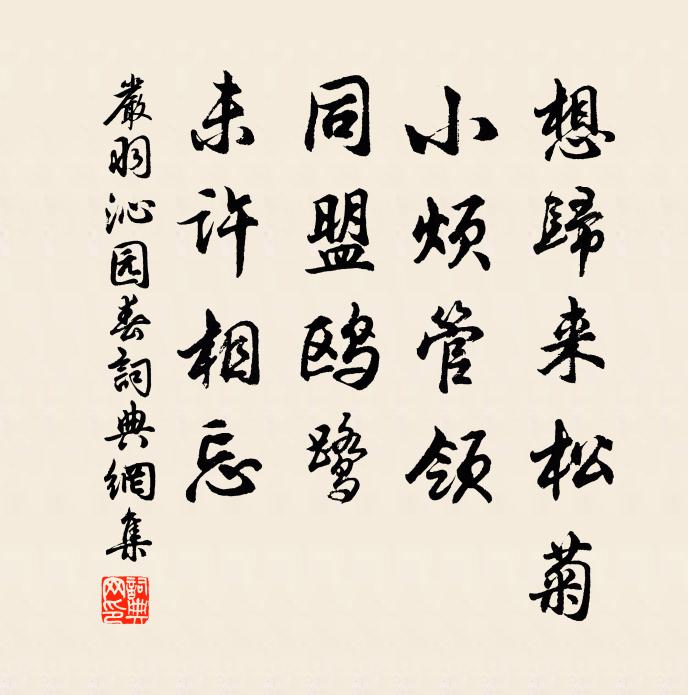 想歸来松菊
小烦管领
同盟鸥鹭
未许相忘
嚴羽沁园春詞典網集
詞典网印